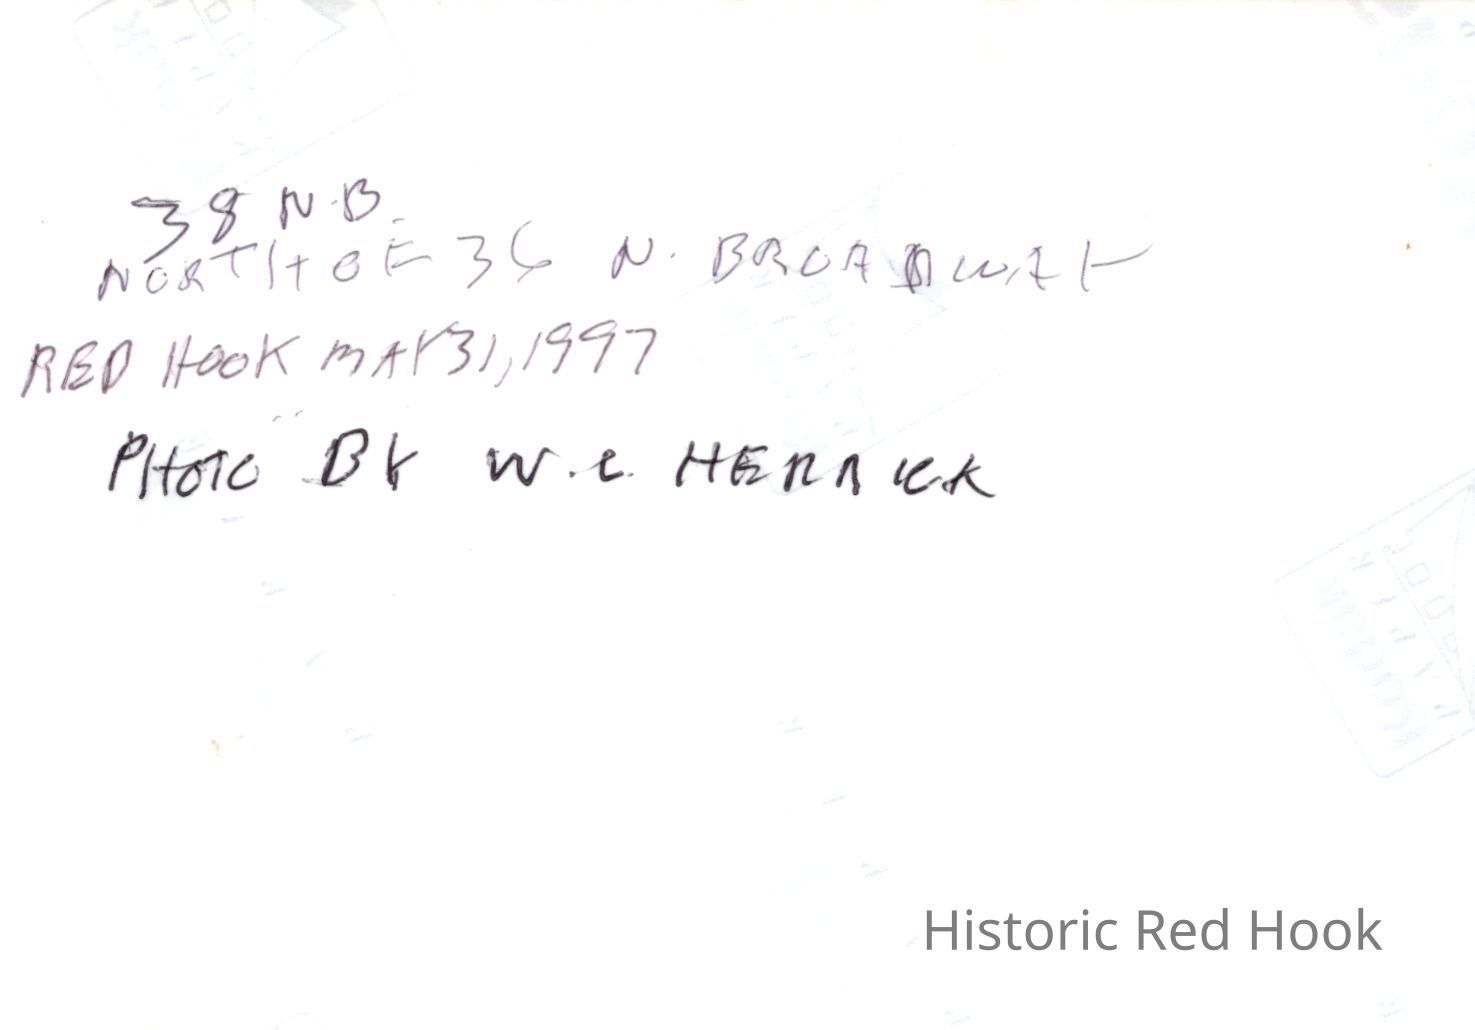 38 N.B.
NORTH OF 36 N. BROADWAY
RED HOOK MAY 31, 1997
PHOTO BY W.C. HERRICK
Historic Red Hook